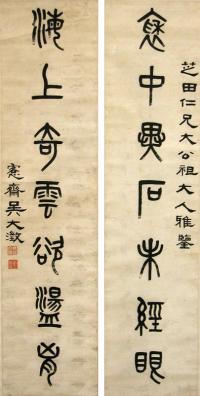 芝田仁兄大公祖大人雅鑒
褎中異石未經眼
海上奇雲欲盪胷
愙齋吳大澂